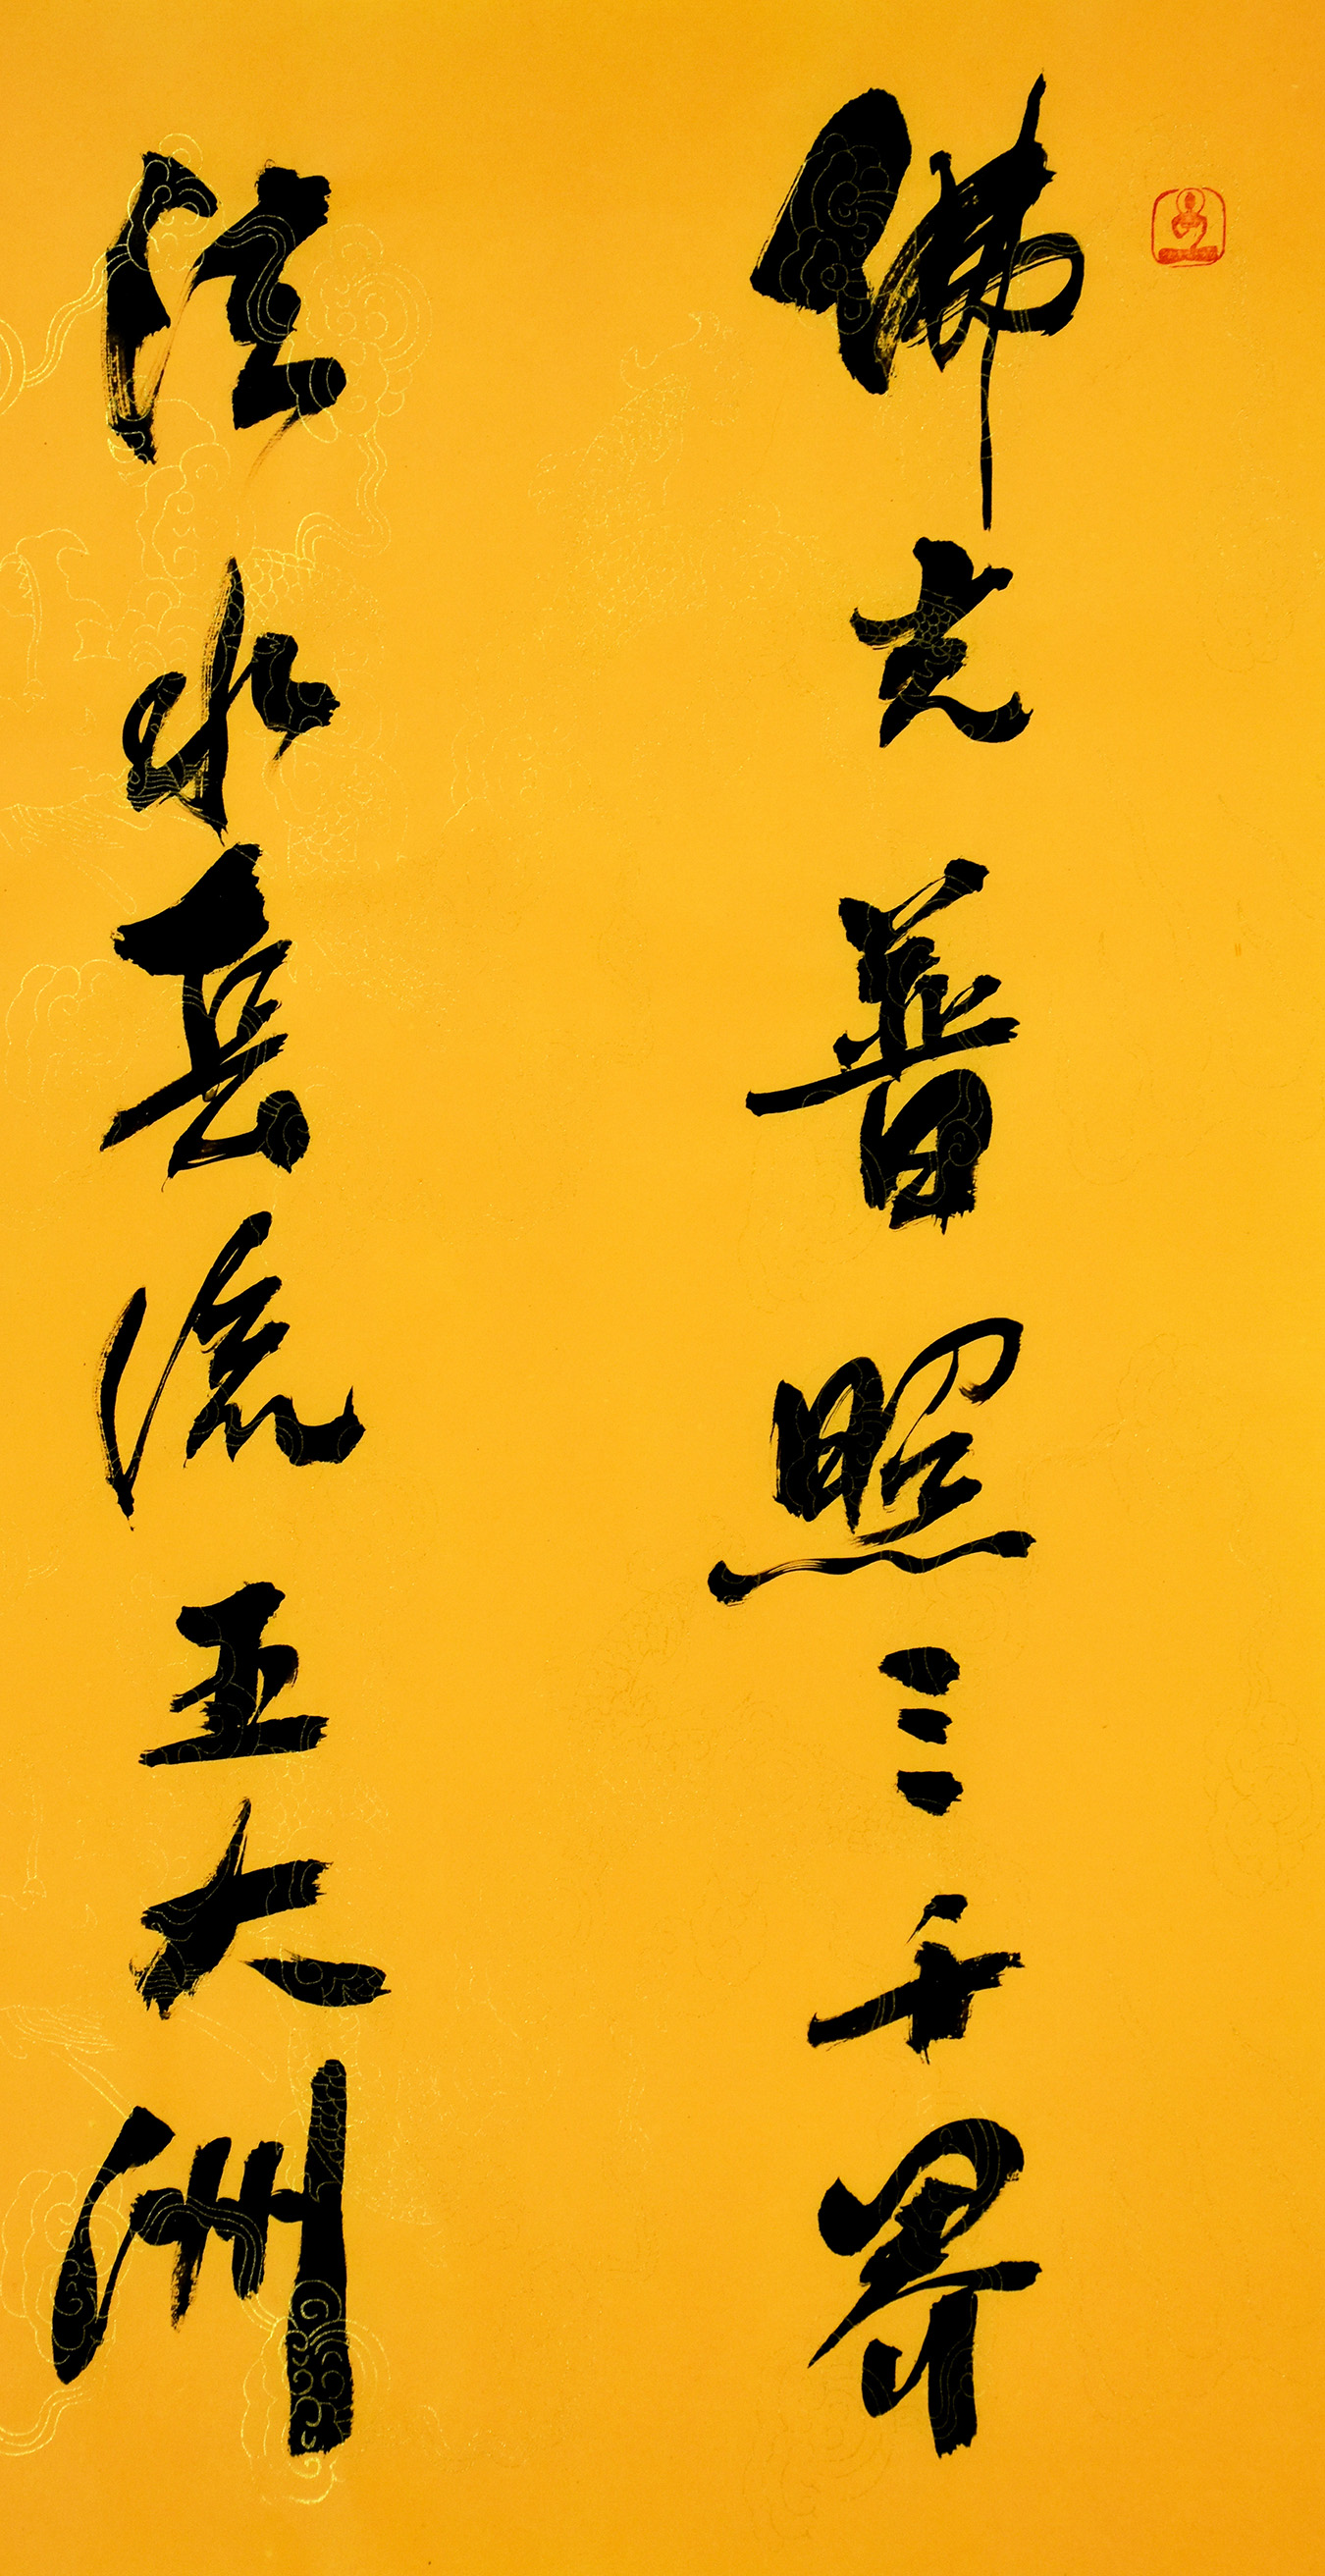 佛光普照三千界
法水長流五大洲